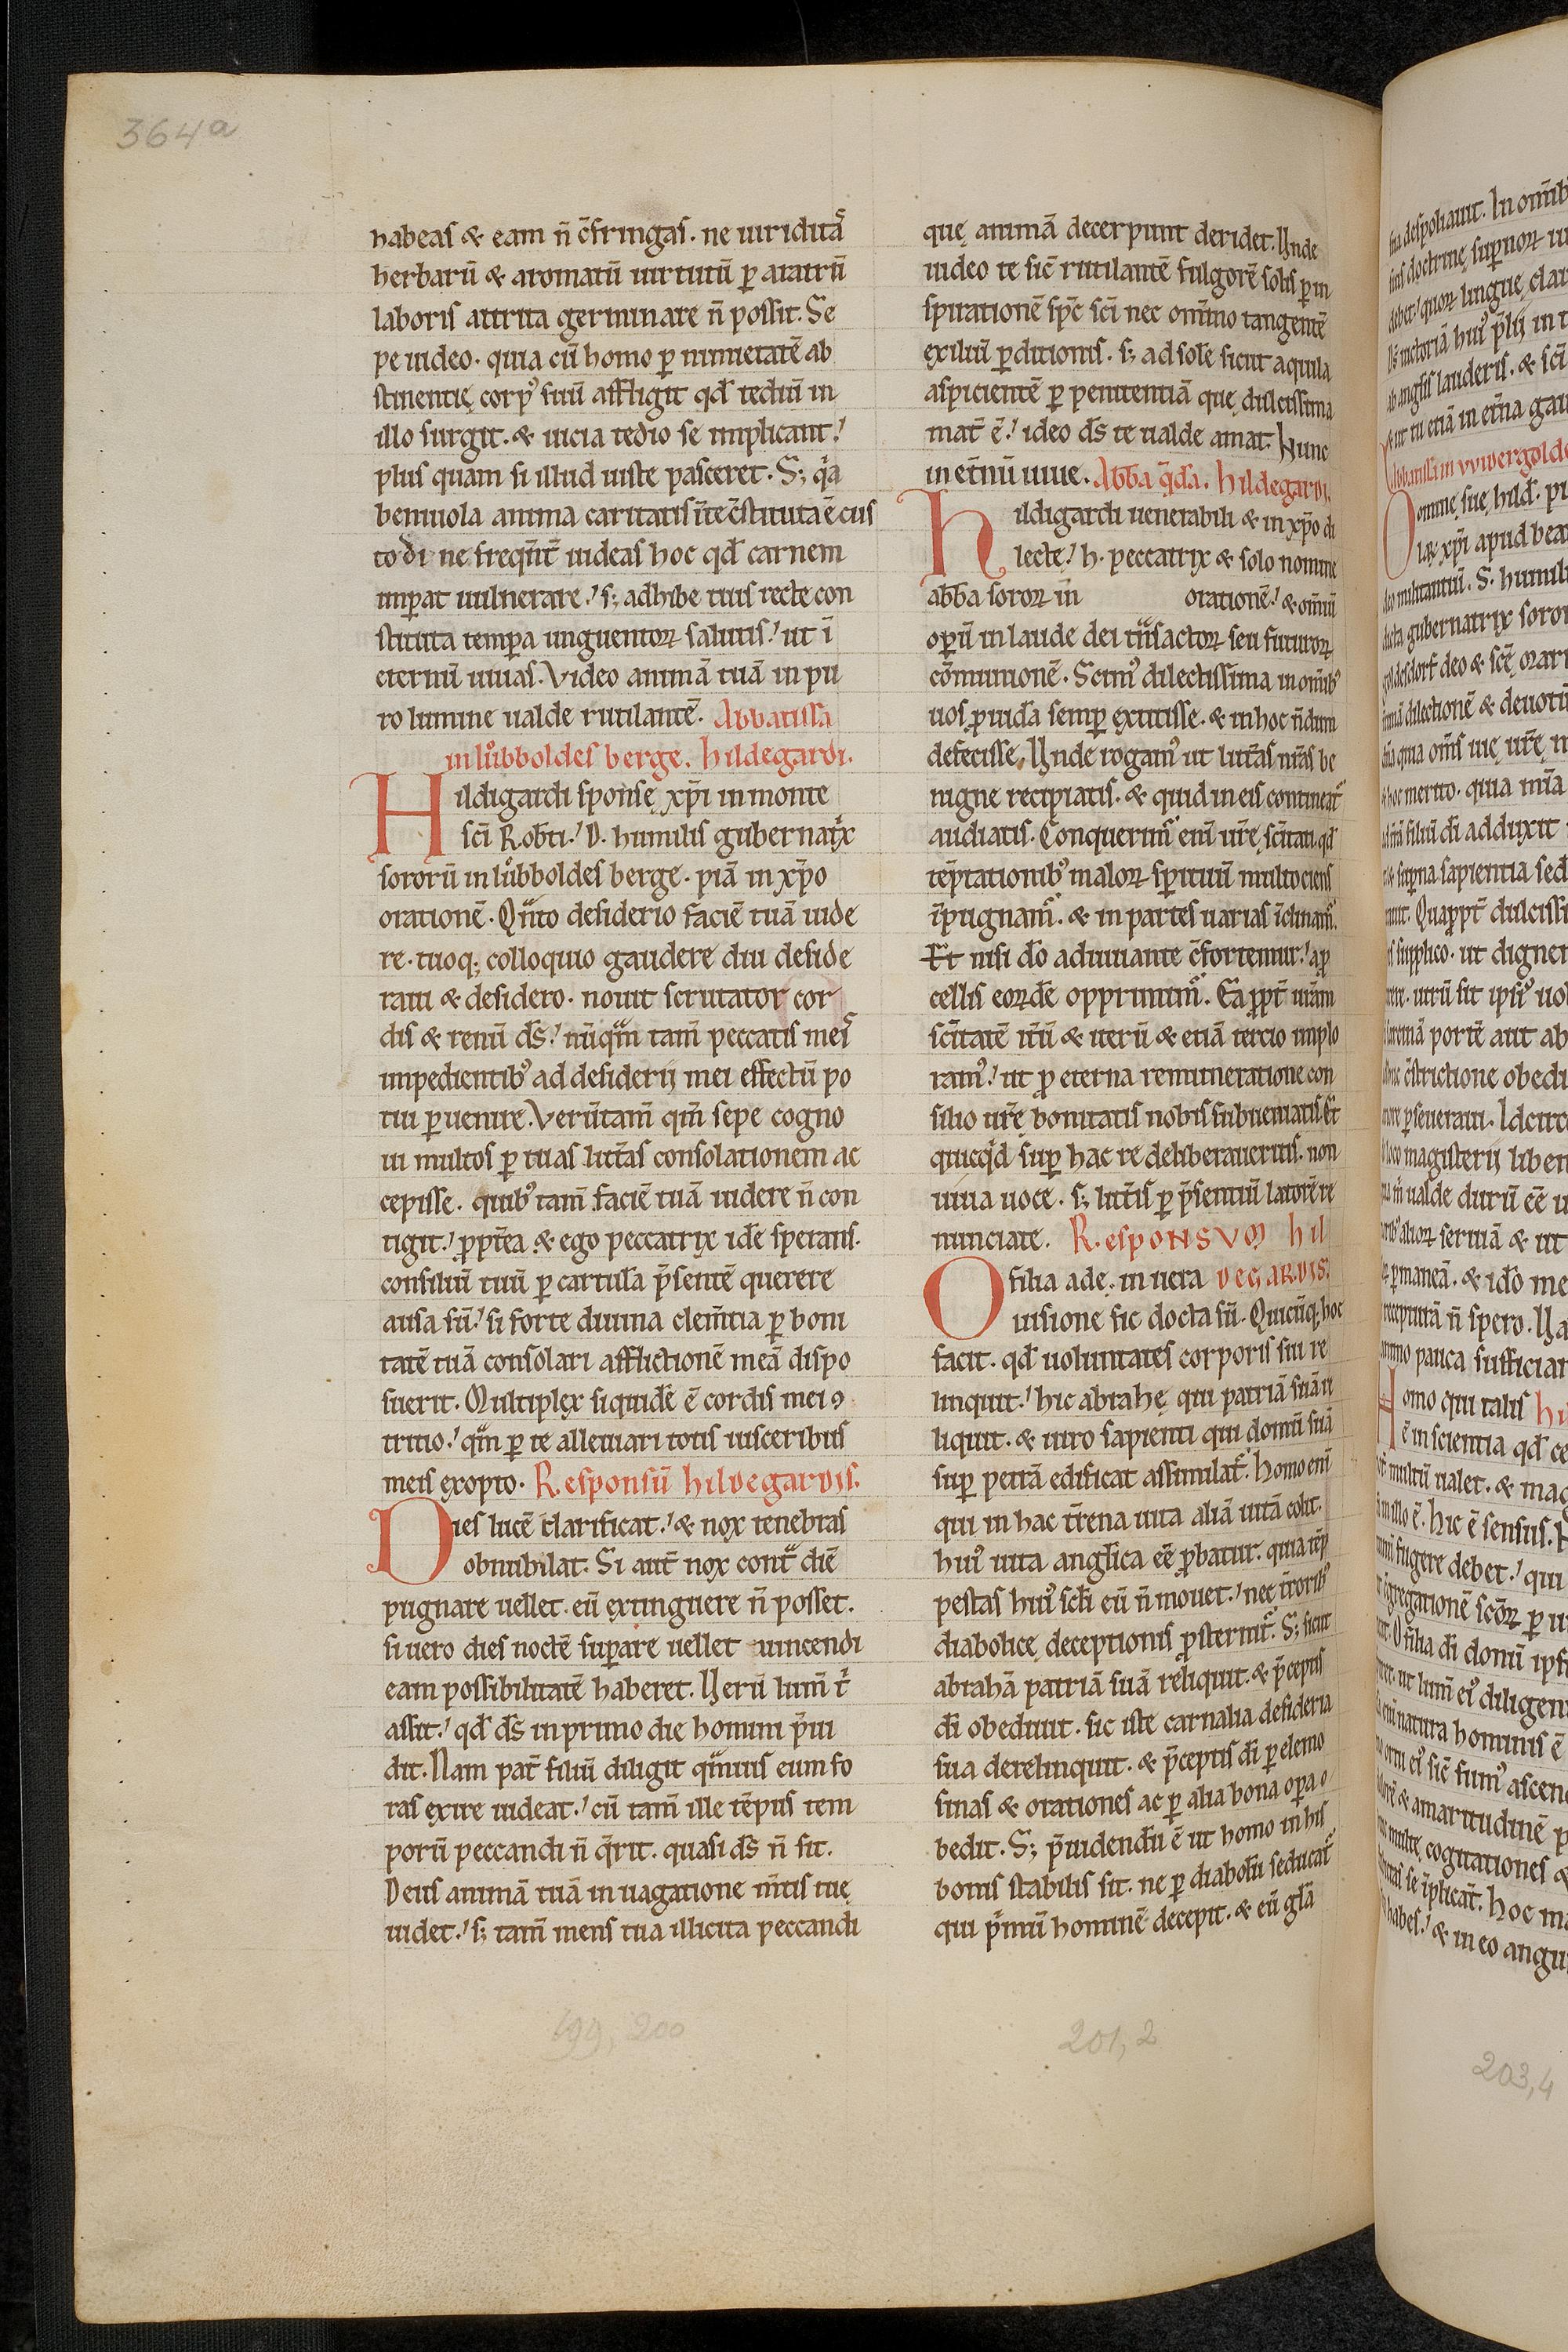 364a
habeas & eam n̄ c̄fringas. ne uiridita͛
herbarū & aromatū uirtutū ꝑ aratrū
laboris attrita germinare n̄ possit. Se
pe uideo. quia cū homo ꝑ nimietatē ab
stinentię corpꝰ suū affligit qd̄ tediū in
illo surgit. & uicia tedio se implicant!
plus quam si illud iuste pasceret. S; qͣa
beniuola anima caritatis ī te c̄stituta ē cus
to di ne freqn̄t̄ uideas hoc qd̄ carnem
imꝑat uulnerare! s; adhibe tuis recte con
stituta temꝑa unguentoꝝ salutis! ut ī
eternū uiuas. Video animā tuā in pu
ro lumine ualde rutilantē. Abbatissa
in lu̇bboldes berge. hildegardi.
Hildigardi sponsę xp̄i in monte
sc̄i Rob̄ti! D. humilis gubernatͥx
sororū in lu̇bboldes berge. piā in xp̄o
orationē. Qͣnto desiderio faciē tuā uide
re. tuoq; colloquio gaudere diu deside
raui & desidero. nouit scrutator cor
dis & renū ds̄! nūqͣm tam̄ peccatis mei͛
impedientibꝰ ad desiderij mei effectū po
tui ꝑuenire. Verūtam̄ qm̄ sepe cogno
ui multos ꝑ tuas litt̄as consolationem ac
cepisse. quibꝰ tam̄ faciē tuā uidere n̄ con
tigit! ꝓpt̄ea & ego peccatrix idē sperans.
consiliū tuū ꝑ cartulā p̄sentē querere
ausa sū! si forte diuina clem̄tia ꝑ boni
tatē tuā consolari afflictionē meā dispo
suerit. Multiplex siquidē ē cordis mei ꝯ
tritio! qͣm ꝑ te alleuiari totis uisceribus
meis exopto. Responsū hildegardis.
Dies lucē clarificat! & nox tenebras
obnubilat. Si aut̄ nox contͣ diē
pugnare uellet. eū extinguere n̄ posset.
si uero dies noctē suꝑare uellet uincendi
eam possibilitatē haberet. Uerū lum̄ tͥ
assit! qd̄ ds̄ in primo die homini p̄ui
dit. Nam pat̄ filiū diligit qͣmuis eum fo
ras exire uideat! cū tam̄ ille tēpus tem
porū peccandi n̄ qͣrit. quasi ds̄ n̄ sit.
Deus animā tuā in uagatione m̄tis tuę
uidet! s; tam̄ mens tua illicita peccandi
199, 200
quę animā decerpunt deridet. Unde
uideo te sic̄ rutilantē fulgorē solis ꝑ in
spirationē sp̄c sc̄i nec om̄ino tangentē
exiliū ꝑditionis. s; ad solē sicut aquila
aspicientē ꝑ penitentiā quę dulcissima
mat̄ ē! ideo ds̄ te ualde amat. Nunc
in et̄nū uiue. Abb̄a qͣda. hildegardi.
hildigardi uenerabili & in xp̄o di
lectę! h. peccatrix & solo nomine
abb̄a soroꝝ in orationē! & om̄iū
oꝑū in laude dei tͣnsactoꝝ seu futuroꝝ
cōmunionē. Scimꝰ dilectissima in om̄ibꝰ
uos ꝓuidā semꝑ extitisse. & in hoc n̄dum
defecisse. Unde rogamꝰ ut litt̄as nr̄as be
nigne recipiatis. & quid in eis contineat᷑
audiatis. Conquerim᷑ eni ur̄ę sc̄itati. qd̄
tēptationibꝰ maloꝝ spirituū multociens
īpugnam᷑. & in partes uarias īclinam᷑.
Et nisi dō adiuuante c̄fortemur! a ꝓ
cellis eorūdē opprimim᷑. Eaꝓpt̄ ur̄am
sc̄itatē it̄ū & iterū & etiā tercio implo
ramꝰ! ut ꝓ eterna remuneratione con
silio ur̄ę bonitatis nobis subueniatis. Et
quicqͥd suꝑ hac re deliberaueritis. non
uiua uoce. s; litt̄is ꝑ p̄sentiū latorē re
nunciate. Responsvm hil
O filia ade. in uera degardis.
uisione sic docta sū. Quicūq; hoc
facit. qd̄ uoluntates corporis sui re
linquit! hic abrahę qui patriā suā re
liquit. & uiro sapienti qui domū suā
suꝑ petrā edificat assimilat᷑. Homo eni
qui in hac t̄rena uita aliā uitā colit.
huiꝰ uita anglica eē ꝓbatur. quia tēp
pestas huiꝰ scli eū n̄ mouet! nec t̄roribꝰ
diabolicę deceptionis ꝓsternit᷑. S; sicut
abrahā patriā suā reliquit. & p̄ceptis
di obediuit. sic iste carnalia desideria
sua derelinquit. & p̄ceptis di ꝑ elemo
sinas & orationes ac ꝑ alia bona oꝑa o
bedit. S; p̄uidendū ē ut homo in his
bonis stabilis sit. ne ꝑ diabolū seducat᷑
qui pͥmū hominē decepit. & eū glā
201, 2
203,4